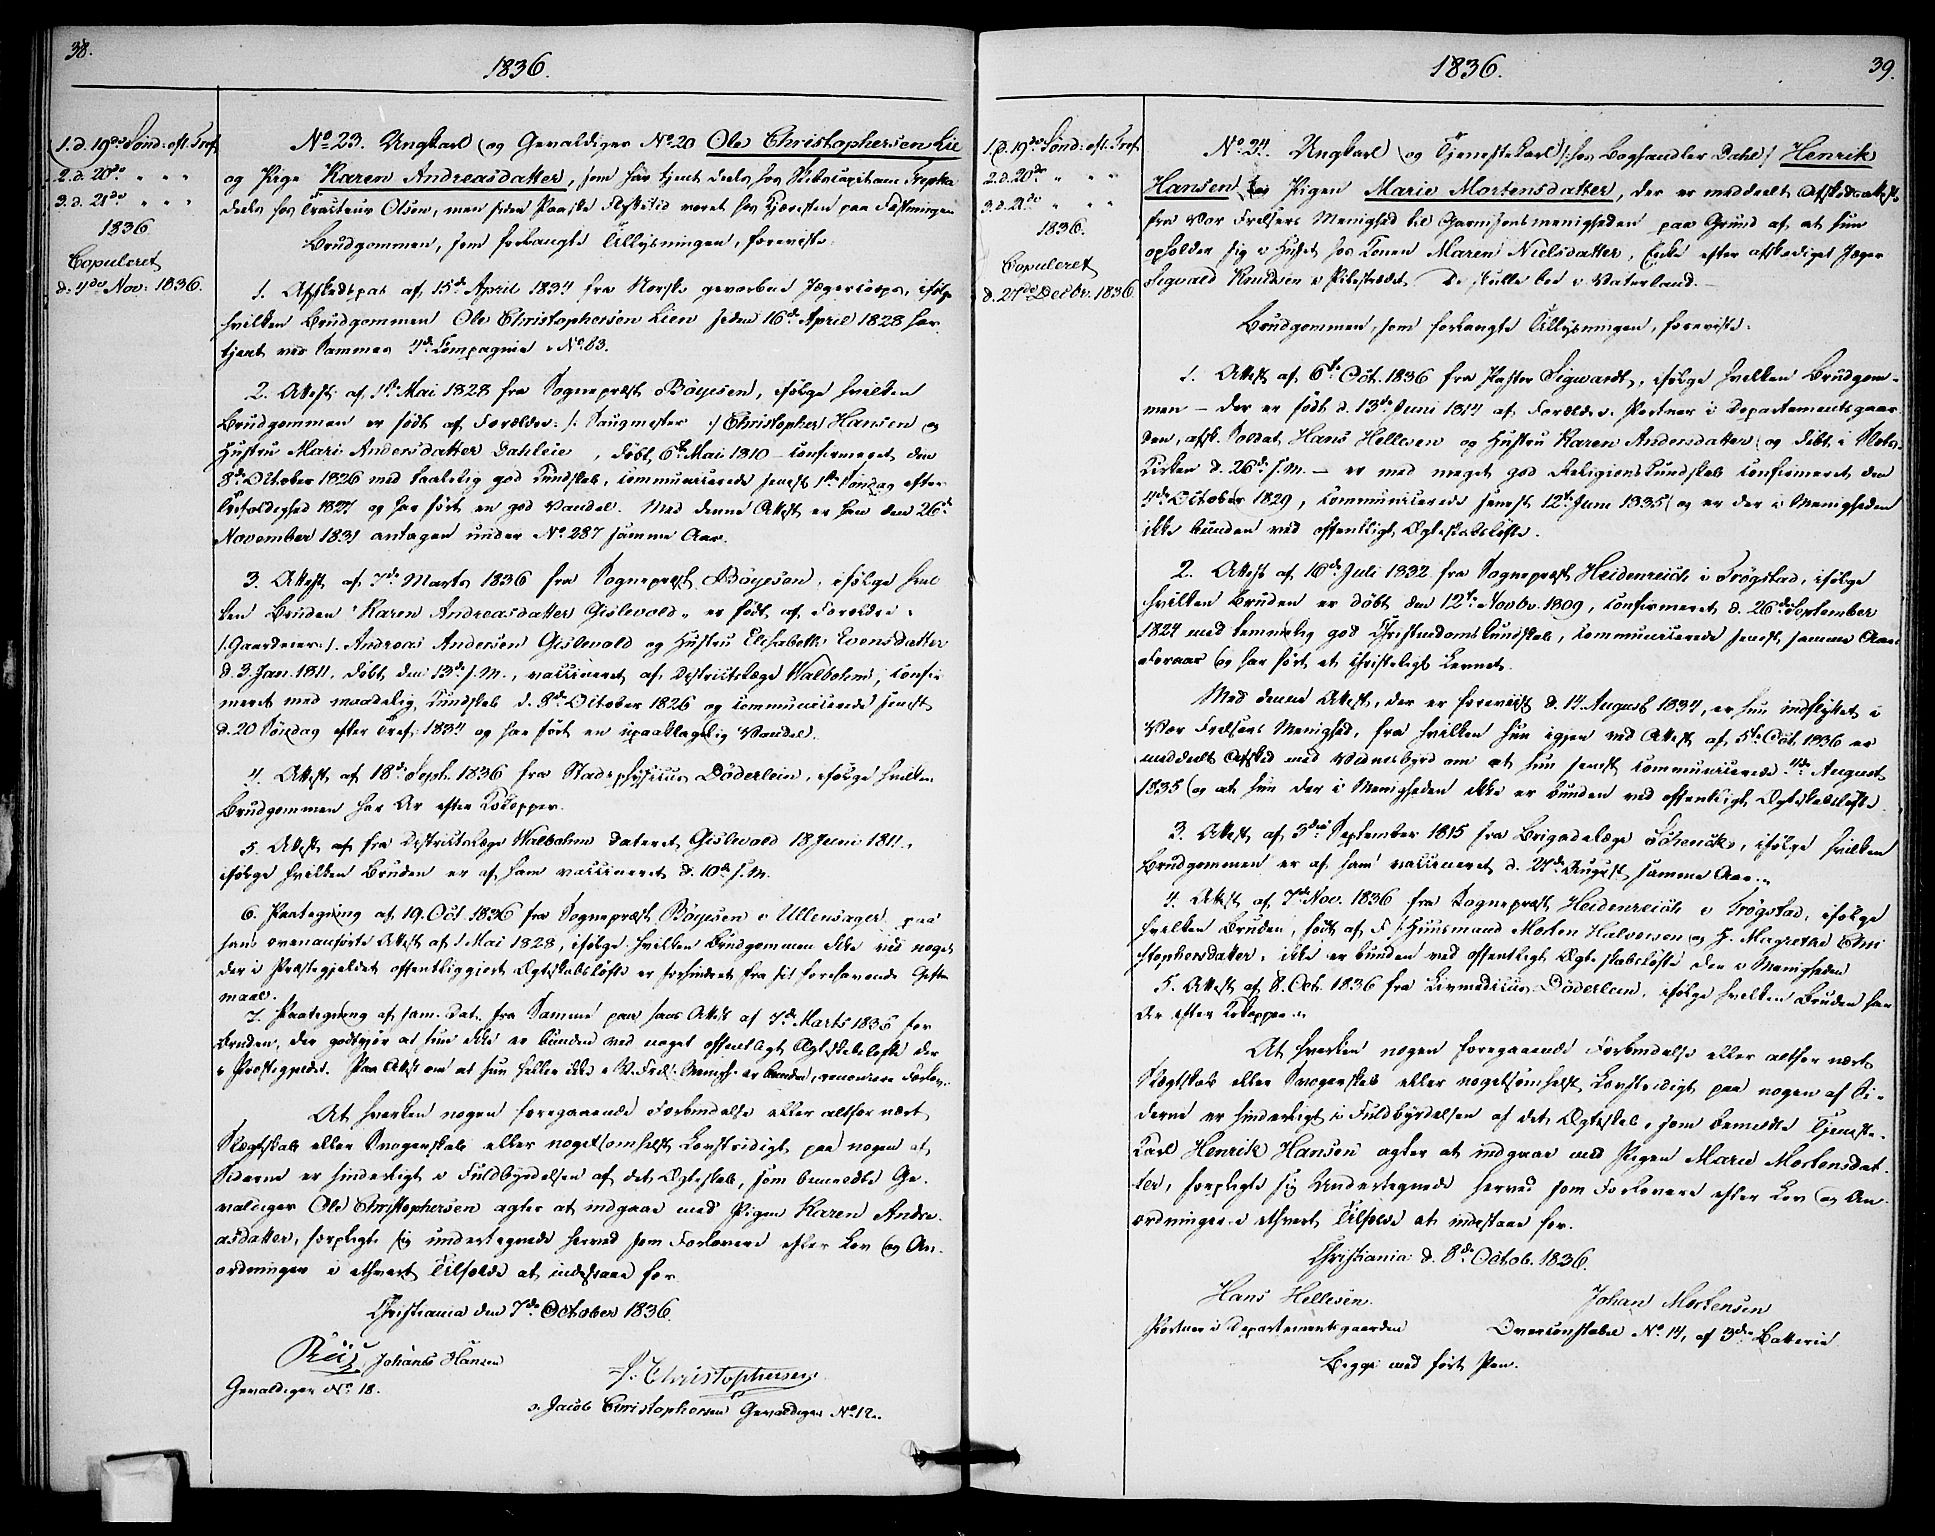 38.
1836.
1. d. 19de Sønd: eft. Tref.
2. d. 20de " " "
3. d. 21de " " "
1836
Copuleret
d: 4de Nov: 1836.
No 23. Ungkarl og Gevaldiger No 20 Ole Christophersen Lie
og Pige Karen Andreasdatter, som har tjent deels hos Vicecapitain Trepka
deels hos Tracteur Olsen, men siden Paaske Flyttetid været hos Hjæresten paa Fæstningen
Brudgommen, som forlangte Tillysningen, foreviste:
1. Afskedspas af 15de April 1834 fra Norske gevorbne Jægercorps, ifølge
hvilken Brudgommen Ole Christophersen Lien siden 16de April 1828 har
tjent ved Sammes 4de Compagnie No 63.
2. Attest af 1ste Mai 1828 fra Sognepræst Bøyesen, ifølge hvilken
Brudgommen er født af Forældre: /: Saugmester :/ Christopher Hansen og
Hustru Mari Andersdatter Dahleie, døbt 6te Mai 1810 - confirmeret den
8de October 1826 med taalelig god Kundskab, communicerede senest 1ste Søndag efter
Trefoldighed 1827 og har ført en god Vandel. Med denne Attest er han den 26de
November 1831 antagen under No 287 samme Aar.
3. Attest af 7de Marts 1836 fra Sognepræst Bøyesen, ifølge hvil
ken Bruden "Karen Andreasdatter Gislevold" er født af Forældre:
/: Gaardeier :/ Andreas Andersen Gislevold og Hustru Elisabeth Evensdatter
d. 3 Jan. 1811, døbt den 13de s. M., vaccineret af Districtslæge Walbohm, confir
meret med maadelig Kundskab d. 8de October 1826 og communicerede senest
d. 20 Søndag efter Tref. 1834 og har ført en upaaklagelig Vandel.
4. Attest af 18de Septb. 1836 fra Stadsphysicus Døderlein, ifølge hvilken
Brudgommen har Ar efter Kokopper.
5. Attest af fra Districtslæge Walbohm dateret Gislevold 18 Juni 1811,
ifølge hvilken Bruden er af ham vaccineret d. 10de s. M.
6. Paategning af 19. Oct 1836 fra Sognepræst Bøyesen i Ullensager paa
hans ovenanførte Attest af 1 Mai 1828, ifølge hvilken Brudgommen ikke ved noget
der i Præstegjeldet offentliggjort Ægteskabsløfte er forhindret fra sit forehavende Gifter
maal.
7. Paategning af sam. Dat. fra Samme paa hans Attest af 7de Marts 1836 for
Bruden, der godtgjør at hun ikke er bunden ved noget offentligt Ægteskabsløfte der
i Præstegjeldet. Paa Attest om at hun heller ikke i V. Frels. Menigh. er bunden, renoncere Forlov.
At hverken nogen foregaaende Forbindelse eller altfor nært
Slægtskab eller Svogerskab eller nogetsomhelst Lovstridigt paa nogen af
Siderne er hinderligt i Fuldbyrdelsen af det Ægteskab, som bemeldte Ge-
valdiger Ole Christophersen agter at indgaae med Pigen Karen Andre-
asdatter, forpligte sig undertegnede herved som Forlovere efter Lov og An-
ordninger i ethvert Tilfælde at indestaae for.
Christiania den 7de October 1836.
Riis Johannes Hansen
Gevaldiger No 18.
J. Christophersen
Jacob Christophersen Gevaldiger No 12.
1836.
39.
1. d. 19de Sønd: eft. Tref.
2. d. 20de " " "
3. d. 21de " " "
1836.
Copuleret
d. 27de Decbr. 1836.
No 24. Ungkarl og Tjenestekarl /: hos Boghandler Dahl :/ Henrik
Hansen og Pigen Marie Mortensdatter, der er meddeelt Afskedsattest
fra Vor Frelsers Menighed til Garnisonsmenigheden paa Grund af at hun
opholder sig i Huset hos Konen Maren Nielsdatter, Enke efter afskediget Jæger
Sigvald Knudsen i Pilestrædet. De skulle boe i Vaterland.
Brudgommen, som forlangte Tillysningen, foreviste:
1. Attest af 6te Oct. 1836 fra Pastor Sigwardt, ifølge hvilken Brudgom-
men - der er født d. 13de Juni 1814 af Forældre: Portner i Departementsgaar
den, afsk. Soldat Hans Hellesen og Hustru Karen Andersdatter og døbt i Slots-
kirken d. 26de s. M. - er med meget god Religionskundskab confirmeret den
4de October 1829, communicerede senest 12te Juni 1835 og er der i Menigheden
ikke bunden ved offentligt Ægteskabsløfte.
2. Attest af 16de Juli 1832 fra Sognepræst Heidenreich i Trøgstad, ifølge
hvilken Bruden er døbt den 12te Novbr. 1809, confirmeret d. 26de September
1824 med temmelig god Christendomskundskab, communicerede senest samme Aars
Foraar og har ført et christeligt Levnet.
Med denne Attest, der er foreviist d. 14 August 1834, er hun indflyttet i
Vor Frelsers Menighed, fra hvilken hun igjen ved Attest af 5te Oct. 1836 er
meddeelt Afsked med Vidnesbyrd om at hun senest communicerede 4de August
1835 og at hun der i Menigheden ikke er bunden ved offentligt Ægteskabsløfte.
3. Attest af 3die September 1815 fra Brigadelæge Schenck, ifølge hvilken
Brudgommen er af ham vaccineret d. 27de August samme Aar.
4. Attest af 7de Nov. 1836 fra Sognepræst Heidenreich i Trøgstad, ifølge
hvilken Bruden, født af F. /: Huusmand Morten Halvorsen og H. Magrethe Chri
stophersdatter, ikke er bunden ved offentligt Ægteskabsløfte der i Menigheden
5. Attest af 8. Oct. 1836 fra Livmedicus Døderlein, ifølge hvilken Bruden har
Ar efter Kokopper.
At hverken nogen foregaaende Forbindelse eller altfor nært
Slægtskab eller Svogerskab eller nogetsomhelst Lovstridigt paa nogen af Si-
derne er hinderligt i Fuldbyrdelsen af det Ægteskab, som bemeldte Tjeneste-
karl Henrik Hansen agter at indgaae med Pigen Marie Mortensdat-
ter, forpligte sig Undertegnede herved som Forlovere efter Lov og An-
ordninger i ethvert Tilfælde at indestaae for.
Christiania d. 8de Octob. 1836.
Hans Hellesen.
Portner i Departementsgaarden
Johan Mortensen
Overconstabel No 14, af 3die Batterie
Begge med ført Pen.